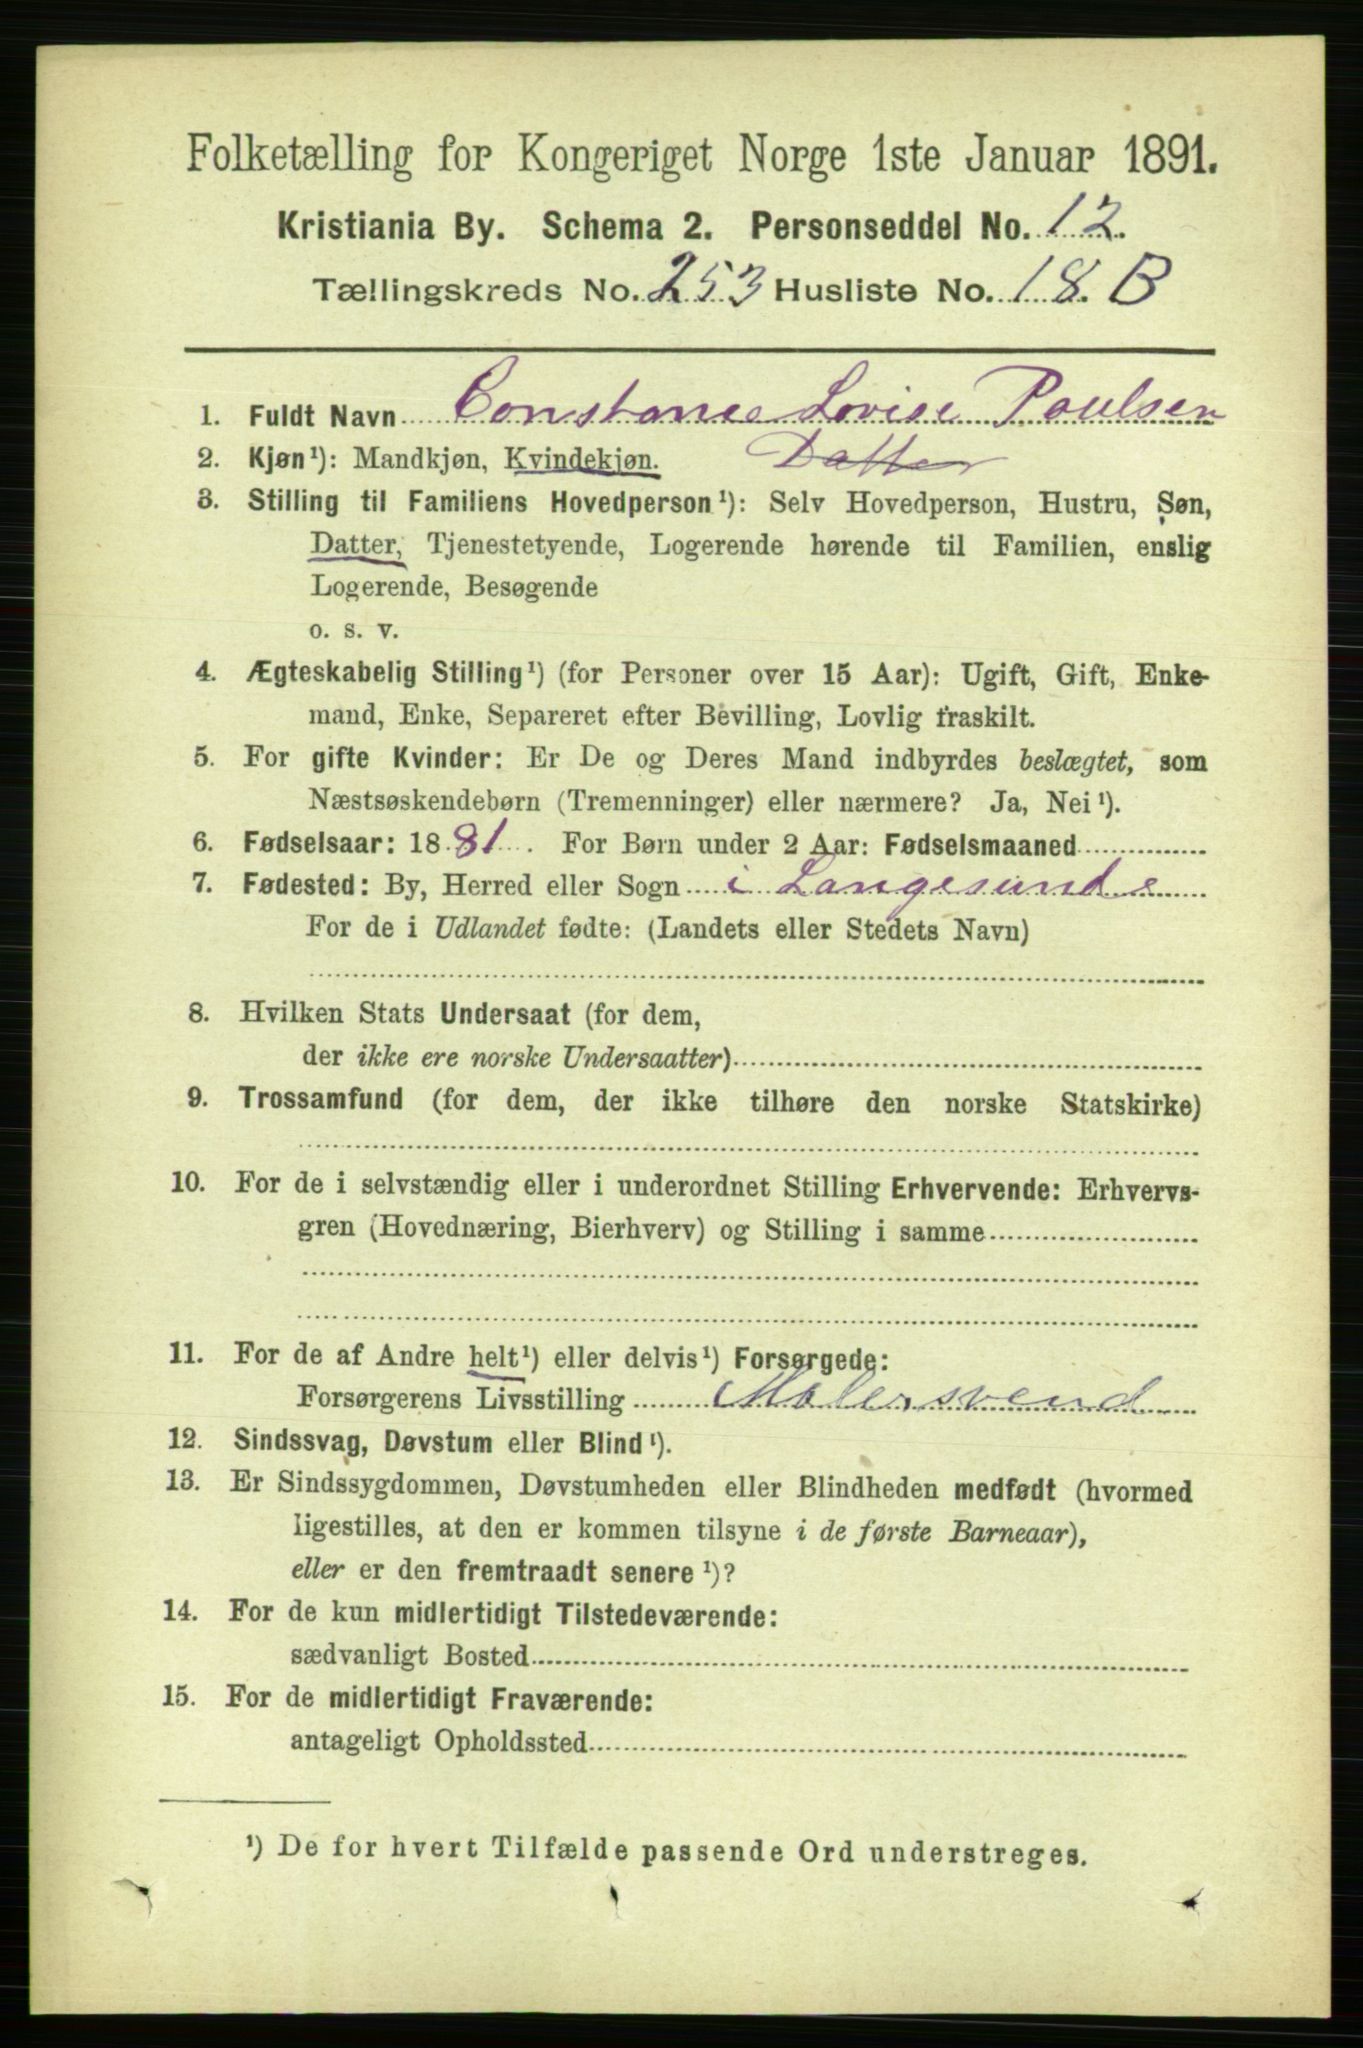 Folketælling for Kongeriget Norge 1ste Januar 1891.
Kristiania By. Schema 2. Personseddel No. 12.
Tællingskreds No. 253 Husliste No. 18. B
1. Fuldt Navn Constance Lovise Poulsen
2. Kjøn¹): Mandkjøn, Kvindekjøn. Datter
3. Stilling til Familiens Hovedperson¹): Selv Hovedperson, Hustru, Søn,
Datter, Tjenestetyende, Logerende hørende til Familien, enslig
Logerende, Besøgende
o. s. v.
4. Ægteskabelig Stilling¹) (for Personer over 15 Aar): Ugift, Gift, Enke-
mand, Enke, Separeret efter Bevilling, Lovlig fraskilt.
5. For gifte Kvinder: Er De og Deres Mand indbyrdes beslægtet, som
Næstsøskendebørn (Tremenninger) eller nærmere? Ja, Nei¹).
6. Fødselsaar: 1881. For Børn under 2 Aar: Fødselsmaaned
7. Fødested: By, Herred eller Sogn i Langesunde
For de i Udlandet fødte: (Landets eller Stedets Navn)
8. Hvilken Stats Undersaat (for dem,
der ikke ere norske Undersaatter)
9. Trossamfund (for dem, der ikke tilhøre den norske Statskirke)
10. For de i selvstændig eller i underordnet Stilling Erhvervende: Erhvervs-
gren (Hovednæring, Bierhverv) og Stilling i samme
11. For de af Andre helt¹) eller delvis¹) Forsørgede:
Forsørgerens Livsstilling Malersvend
12. Sindssvag, Døvstum eller Blind¹).
13. Er Sindssygdommen, Døvstumheden eller Blindheden medfødt (hvormed
ligestilles, at den er kommen tilsyne i de første Barneaar),
eller er den fremtraadt senere¹)?
14. For de kun midlertidigt Tilstedeværende:
sædvanligt Bosted
15. For de midlertidigt Fraværende:
antageligt Opholdssted
¹) De for hvert Tilfælde passende Ord understreges.